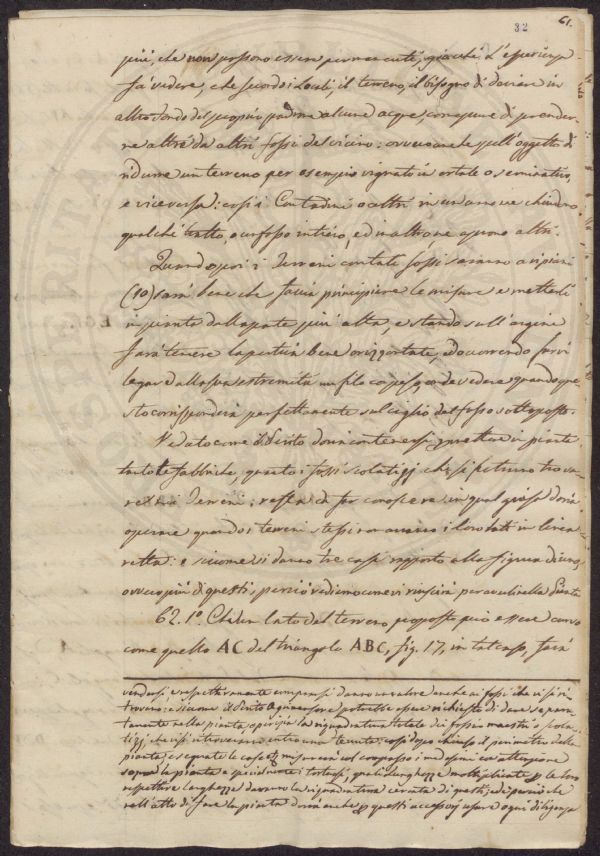 61.
32
più, che non possono essere permanenti, giacchè l'esperienza
fà vedere, che secondo i locali, il terreno, il bisogno di dariare in
altro fondo del proprio padrone alcune acque, come pure di prender-
ne altre da altri fossi del vicino: ovvero anche pell'oggetto di
ridurre un terreno per esempio vignato in ortale o seminativo,
e viceversa: così i Contadini o altri in un anno ve chiudono
qualche tratto, o un fosso intiero, ed in altro ne aprono altri.
Quando poi i Terreni contati fossi saranno a ripiani
(10) sarà bene che facia principiare le misure e metterli
in pianta dalla parte più alta, e stando sull'argine
farà tenere la pertica bene orizzontale, ed occorrendo farvi
legare dalla sua estremità un filo a per vedere quando que-
sto corrisponderà perfettamente sul ciglio del fosso sottoposto.
Veduto come il Perito dovrà contenersi p mettere in pianta
tanto le fabbriche, quanto i fossi scolatizj che si potranno trova-
re nei Terreni; resta da far conoscere in qual guisa dovrà
operare quando i terreni stessi non avranno i loro lati in linea
retta: e siccome si danno tre casi rapporto alla figura di uno,
ovvero più di questi, perciò vedremo come vi riuscirà per averli nella Pianta
62. 1º. Che un lato del terreno proposto può essere curvo
come quello AC del triangolo ABC, fig. 17, in tal caso, farà
vendersi, e rispettivamente comprarsi danno un valore anche ai fossi che vi si ri-
trovano: e siccome il Perito Agrimensore potrebbe essere richiesto di dare separa-
tamente nella pianta, o perizia la riquadratura totale dei fossi maestri o scola-
tizj che visi ritrovassero entro una tenuta: così dopo chiuso il perimetro della
pianta, e segnate le case misurerà col compasso i medesimi con attenzione
sopra la pianta e specialmente i tortuosi, quali lunghezze moltiplicate p le loro
rispettive larghezze daranno la riquadratura cercata di questi; ed è perciò che
nell'atto di fare la pianta dovrà anche p questi accessorj usare ogni diligenza